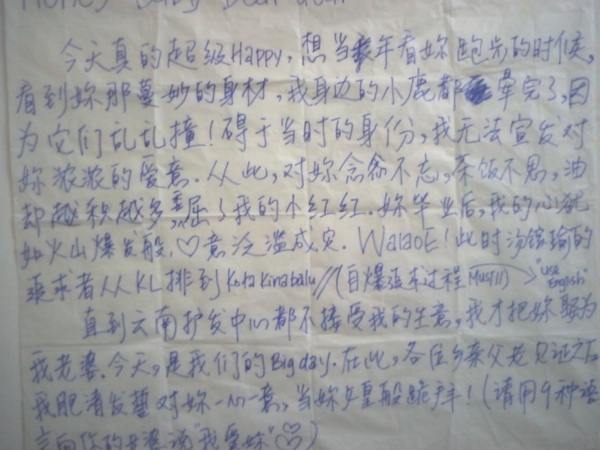 Honey Baby Dear
今天真的超级Happy, 想当年看妳跑步的时候,
看到妳那蔓妙的身材, 我身边的小鹿都晕完了, 因
为它们乱乱撞! 碍于当时的身份, 我无法宣发对
妳浓浓的爱意. 从此, 对妳念念不忘, 茶饭不思, 油
却越积越多, 屈了我的小红红. 妳毕业后, 我的心就
如火山爆发般, ♡意泛滥成灾. WalaoE! 此时汤
追求者从KL排到Kota Kinabalu//(自爆追求过程 Must!!) > "use English"
直到云南护发中心都不接受我的生意, 我才把妳娶为
我老婆. 今天, 是我们的Big day. 在此, 各位乡亲父老见证之后
我肥 发 对妳一心一意, 当妳女皇般 ! (请用9种语
言向你的老婆说"我爱妳"♡)